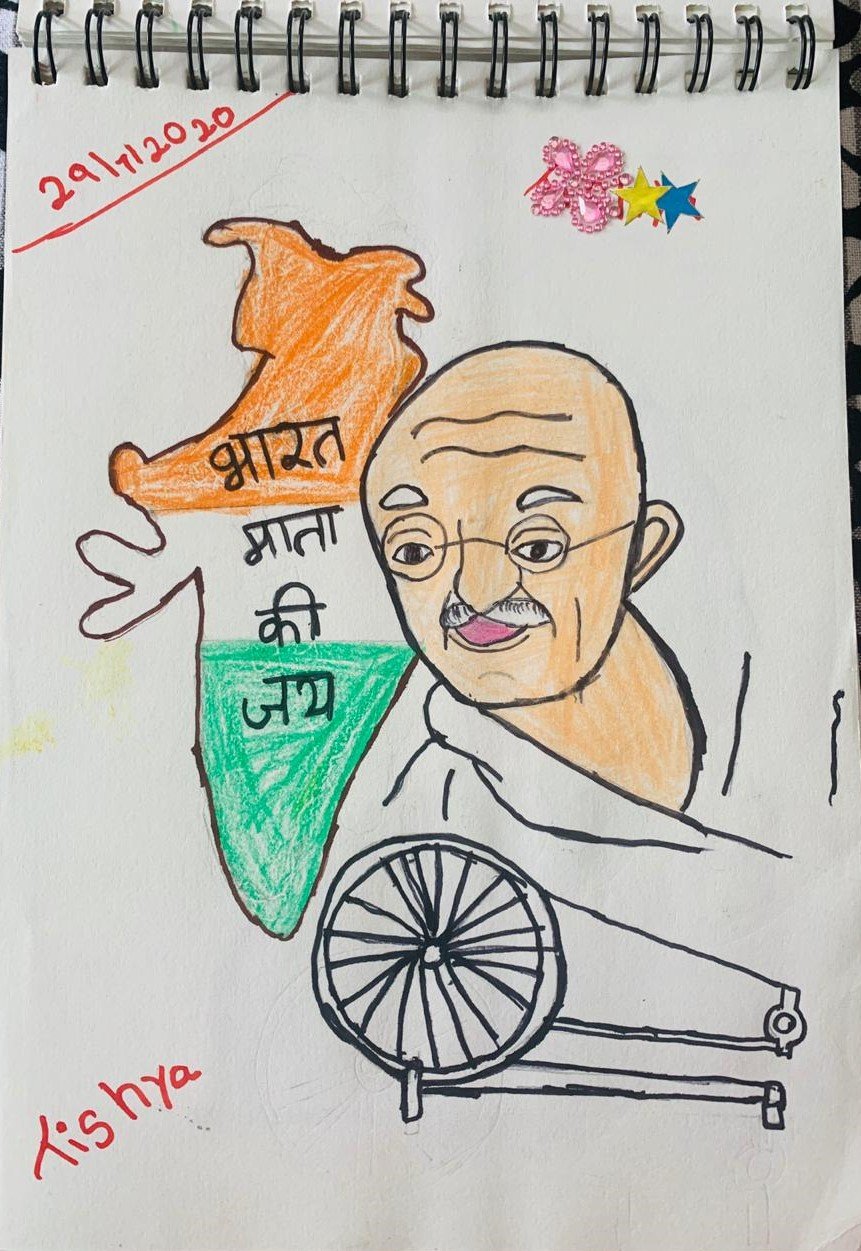 29/7/2020
भारत
माता
की
जय
Tishya